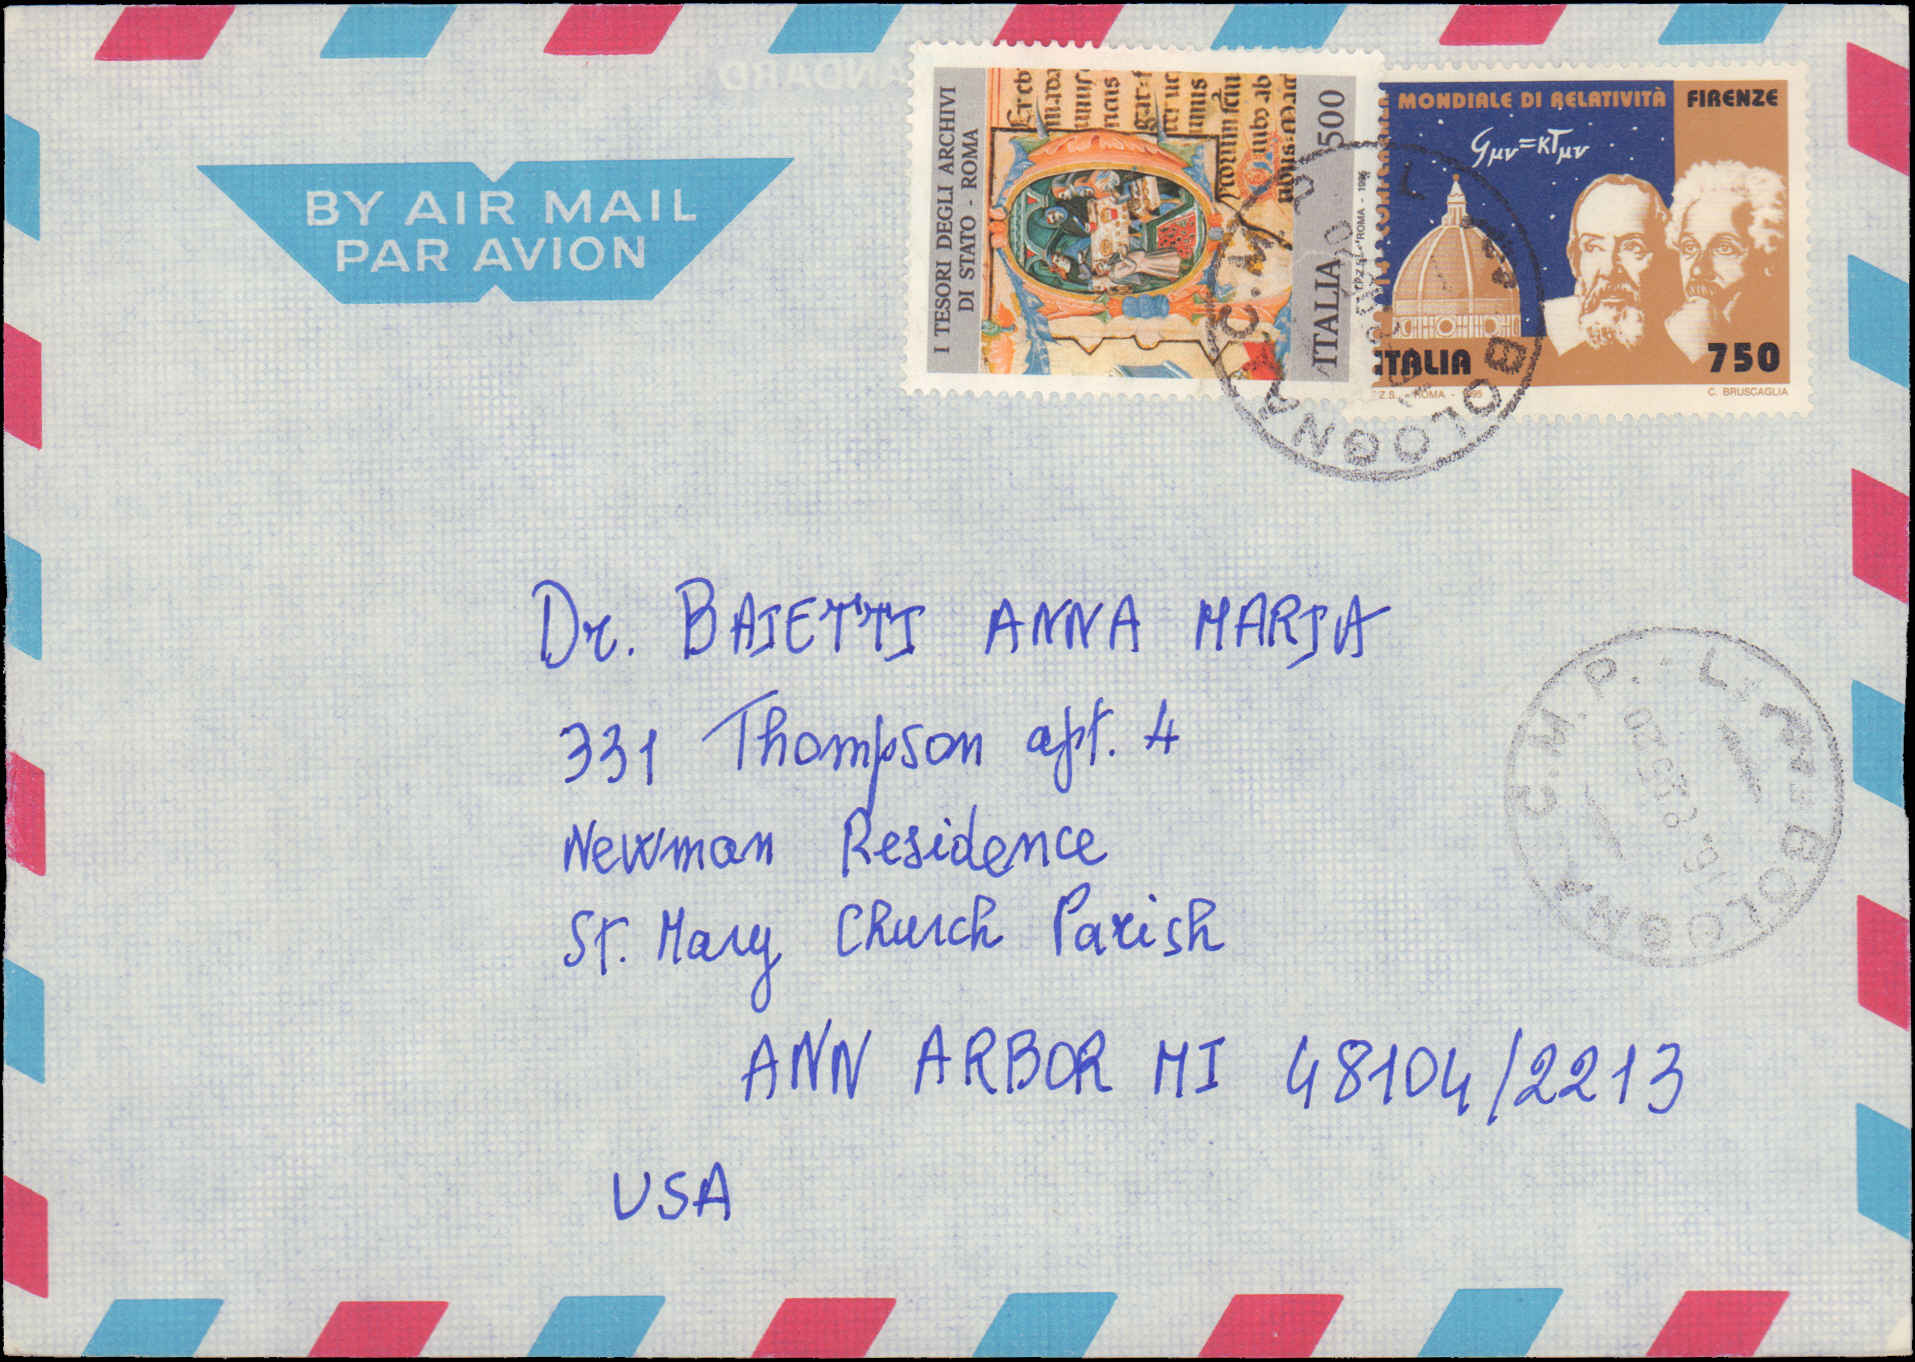 BY AIR MAIL
PAR AVION
I TESORI DEGLI ARCHIVI
DI STATO - ROMA
ITALIA 500
MONDIALE DI RELATIVITÀ FIRENZE
Gμν=κTμν
ITALIA
750
ROMA - 1995
C. BRUSCAGLIA
C.M.P. BOLOGNA
Dr. BAIETTI ANNA MARIA
331 Thompson apt. 4
Newman Residence
St. Mary Church Parish
ANN ARBOR MI 48104/2213
USA
C.M.P. BOLOGNA